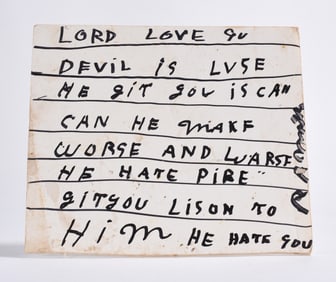 LORD LOVE YU
DEVIL IS LVSE
HE GIT YOU IS CAN
CAN HE MAKE
WORSE AND WARSE
HE HATE PIRE
GITYOU LISON TO
HIM HE HATE YOU